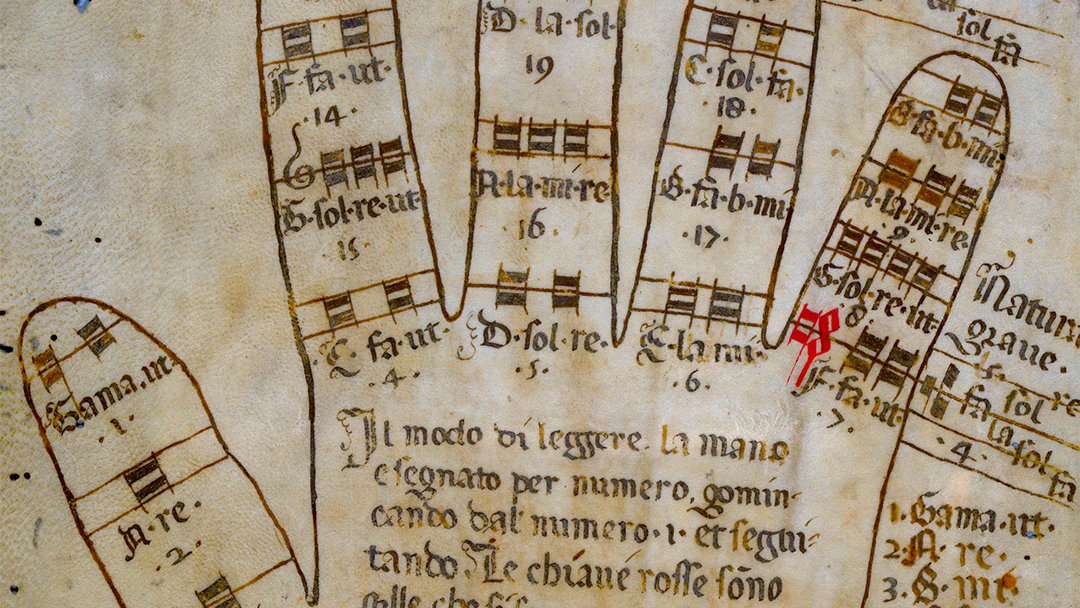 F·fa·ut·
·14·
G·sol·re·ut·
·15·
C· fa·ut·
·4·
D·la·sol·
19
A·la·mi·re·
16
D·sol·re·
·5·
C·sol·fa·
·18·
B·fa·b·mi·
·17·
E·la·mi·
·6·
B·fa·b·mi·
A·la·mi·re·
·9·
G·sol·re·ut·
·8·
F·fa·ut·
·7·
Gama·ut·
·1·
A·re·
·2·
sol
fa
Natura
graue·
re
fa sol
la sol
fa
·4·
Il modo di leggere la mano
e segnato per numero, gomin-
cando dal numero·1· et segui-
tando Le chiaue rosse sono
1·Gama·ut·
2·A· re·
3·B·mi·